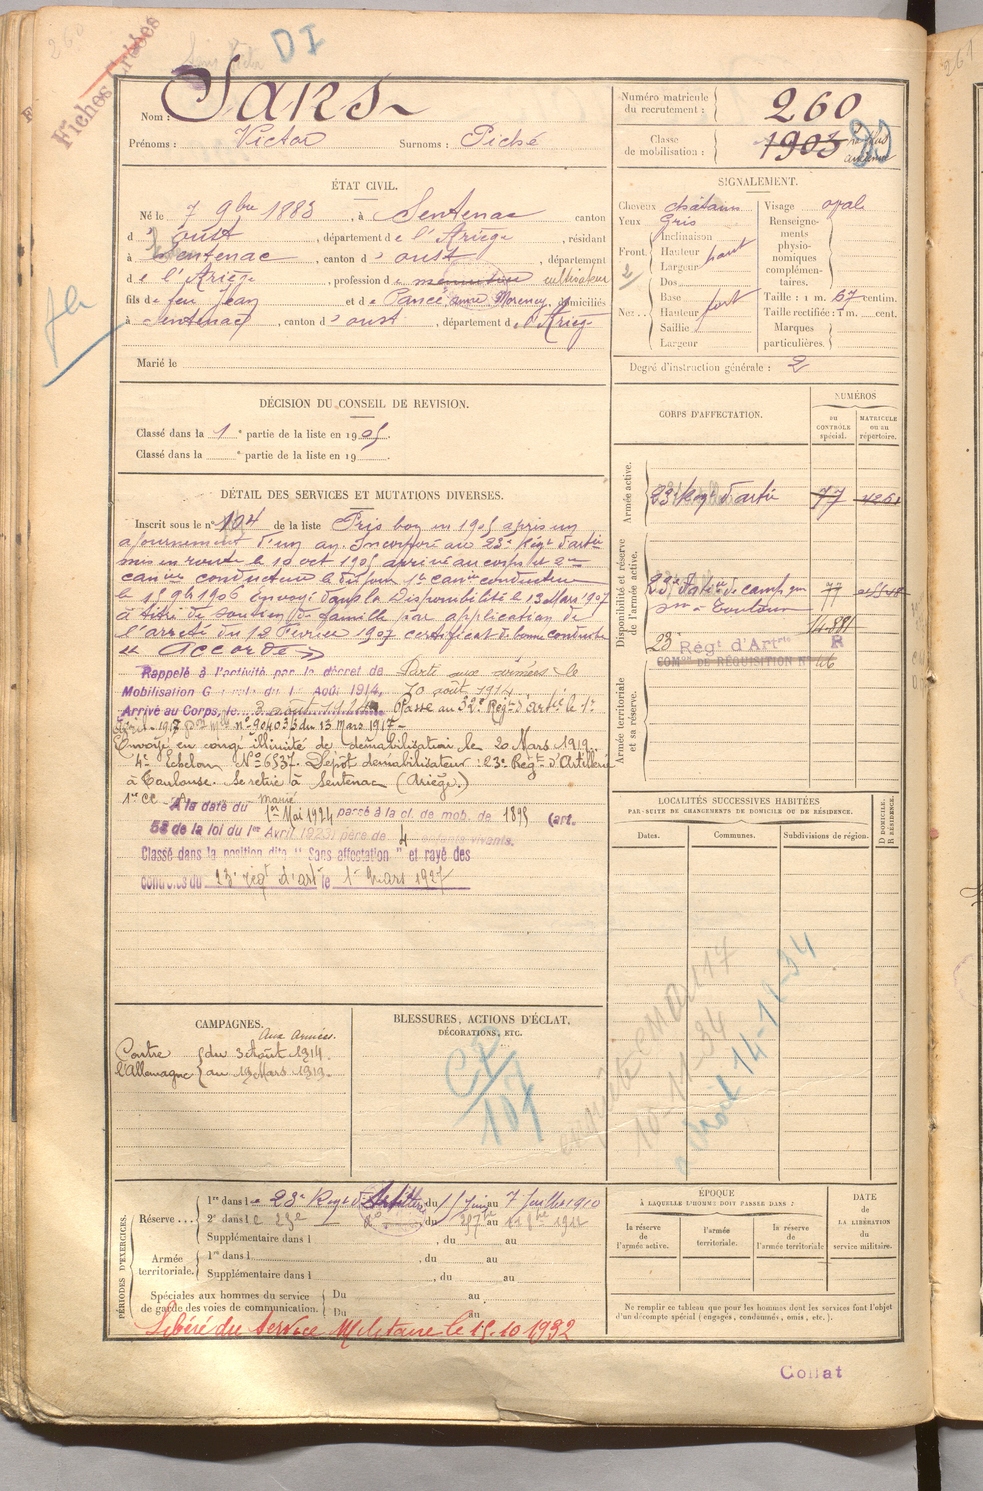 Fiches Créées
DI
Nom : Sans
Prénoms : Victor Surnoms : Piché
Numéro matricule du recrutement : 260
Classe de mobilisation : 1903
ÉTAT CIVIL.
Né le 7 9bre 1883, à Sentenac canton
d'Oust, département de l'Ariège, résidant
à Sentenac, canton d'oust, département
de l'Ariège, profession de cultivateur
fils de feu Jean et de domiciliés
à Sentenac, canton d'oust, département de l'Ariège
Marié le
SIGNALEMENT.
Cheveux châtains
Yeux Gris
Front
Inclinaison
Hauteur haut
Largeur
Nez
Dos
Base fort
Hauteur
Saillie
Largeur
Visage ovale
Renseignements physionomiques complémentaires.
Taille : 1 m. 67 centim.
Taille rectifiée : 1 m. cent.
Marques particulières.
Degré d'instruction générale : 2
DÉCISION DU CONSEIL DE REVISION.
Classé dans la 1e partie de la liste en 1905.
Classé dans la e partie de la liste en 19
CORPS D'AFFECTATION.
NUMÉROS
au CONTRÔLE spécial.
MATRICULE ou au répertoire.
Armée active.
23e Régt d'artie 77
Disponibilité et réserve de l'armée active.
77
14881
23e Régt d'Artrie R
COMon DE RÉQUISITION No
Armée territoriale et sa réserve.
DÉTAIL DES SERVICES ET MUTATIONS DIVERSES.
Inscrit sous le n° 104 de la liste Pris bon en 1905 après un
ajournement d'un an. Incorporé au 23e Régt d'artie
mis en route le 10 oct 1905 arrivé au corps et 2me
canier conducteur le dit jour 1er canier conducteur
le 15 9bre 1906 envoyé dans la Disponibilité le 13 Mars 1907
à titre de soutien de famille par application de
l'arrêté du 12 Février 1907 certificat de bonne conduite
Accordé
Rappelé à l'activité par le décret de Parti aux armées le
Mobilisation Générale du 1er Août 1914, 10 août 1914
Arrivé au Corps, le 3 août 1914 Passé au 32e Régt d'Artie le 1er
Avril 1917 n° 904033 du 13 Mars 1917
Envoyé en congé illimité de démobilisation le 20 Mars 1919.
4e Echelon No 6537. Dépôt démobilisateur : 23e Régt d'Artillerie
à Toulouse. Se retire à Sentenac (Ariège.)
marié
A la date du 1er Mai 1924 passé à la cl. de mob. de 1895 (art.
58 de la loi du 1er Avril 1923) père de 4 enfants vivants.
Classé dans la position dite " Sans affectation " et rayé des
contrôles du 23e régt d'art le 1er Mars 1927
LOCALITÉS SUCCESSIVES HABITÉES
PAR SUITE DE CHANGEMENTS DE DOMICILE OU DE RÉSIDENCE.
Dates. Communes. Subdivisions de région.
D DOMICILE. R RÉSIDENCE.
10-11-34
14-11-34
CAMPAGNES.
Aux Armées.
Contre { du 3 Août 1914.
l'Allemagne { au 19 Mars 1919.
BLESSURES, ACTIONS D'ÉCLAT,
DÉCORATIONS, ETC.
PÉRIODES D'EXERCICES.
Réserve ... 1re dans le 23e Régt d'Artillerie du 15 Juin au 7 Juillet 1910
2e dans le 23e du au
Supplémentaire dans l , du au
Armée territoriale. 1re dans l , du au
Supplémentaire dans l , du au
Spéciales aux hommes du service de garde des voies de communication. Du au
Du au
Libéré du Service Militaire le 15.10 1932
ÉPOQUE
À LAQUELLE L'HOMME DOIT PASSER DANS :
la réserve de l'armée active.
l'armée territoriale.
la réserve de l'armée territoriale
DATE DE LA LIBÉRATION du service militaire.
Ne remplir ce tableau que pour les hommes dont les services font l'objet
d'un décompte spécial (engagés, condamnés, omis, etc.).
Collat
261